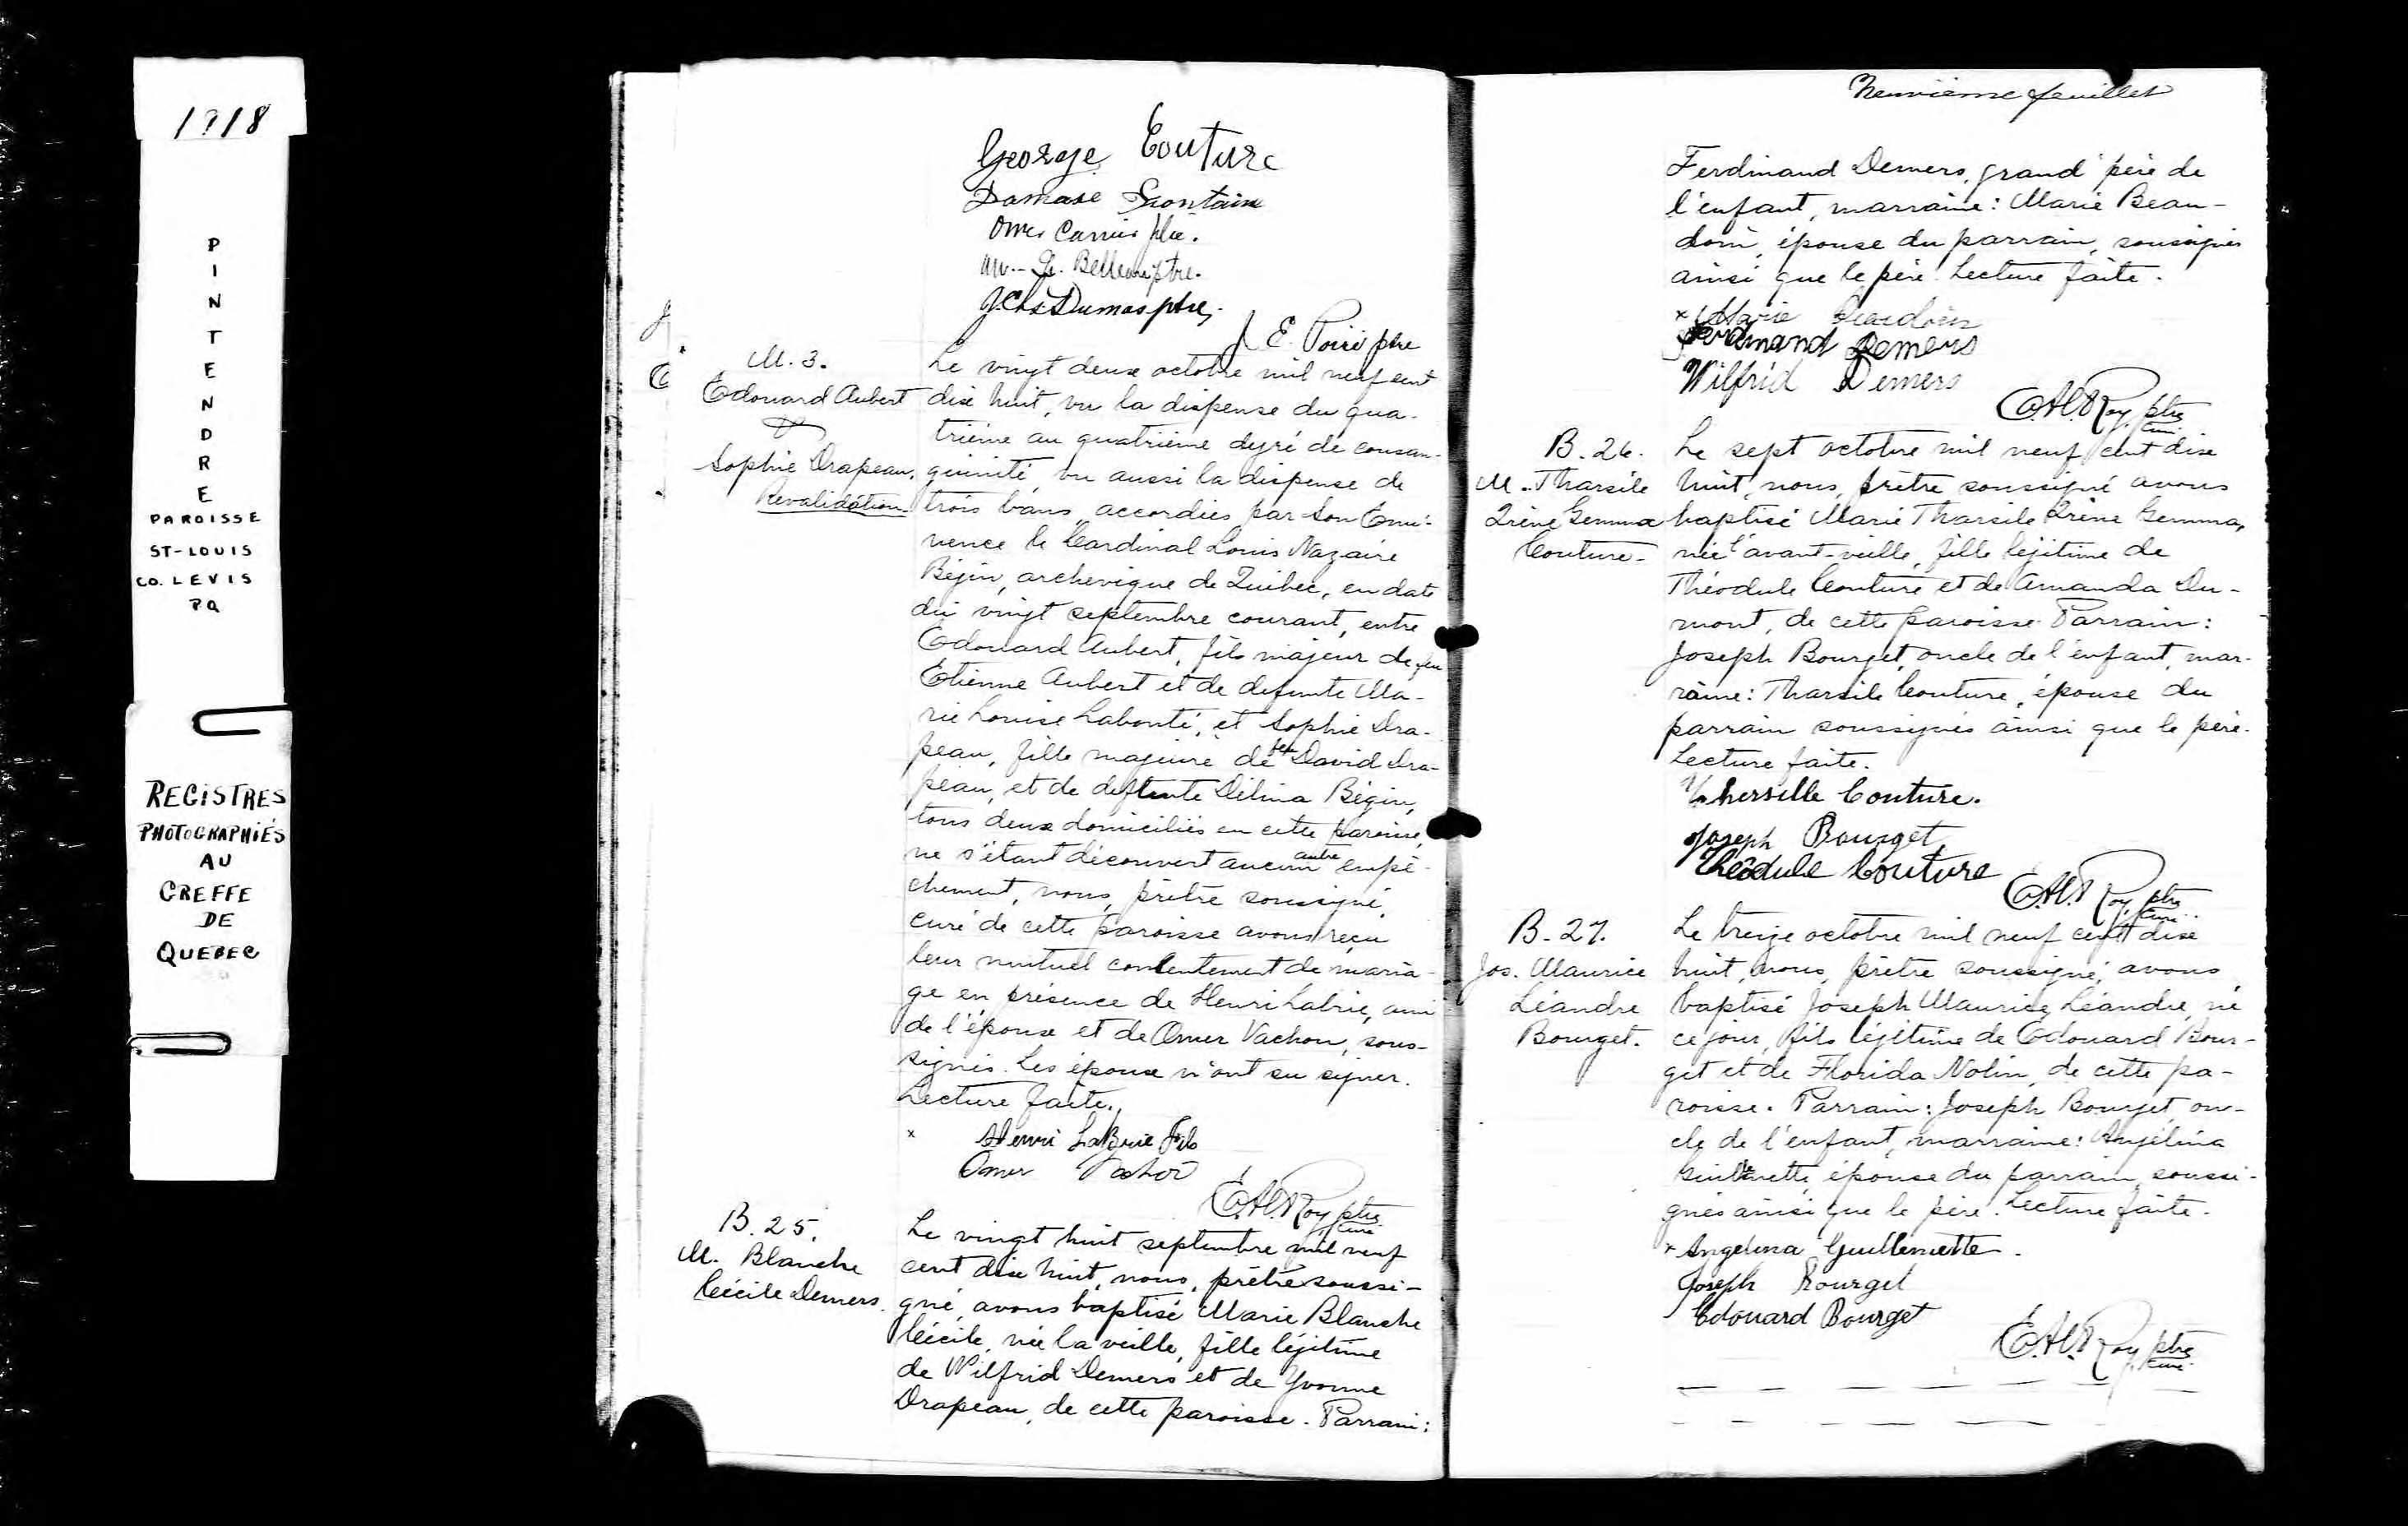 1918
PINTENDRE
PAROISSE
ST-LOUIS
CO. LEVIS
P.Q
REGISTRES
PHOTOGRAPHIÉS
AU
GREFFE
DE
QUEBEC
George Couture
Damase
Omer Carrier ptre.
J. Chs. Dumas ptre,
J. E. Poiré ptre
M. 3.
Edouard Aubert
&
Sophie Drapeau.
Revalidation
Le vingt deux octobre mil neuf cent
dix huit, vu la dispense du qua-
trième au quatrième degré de consan-
guinité, vu aussi la dispense de
trois bans, accordées par Son Émi-
nence le Cardinal Louis Nazaire
Bégin, archevêque de Québec, en date
du vingt septembre courant, entre
Edouard Aubert, fils majeur de feu
Etienne Aubert et de defunte Ma-
rie Louise Labonté, et Sophie Dra-
peau, fille majeure de feu David Dra-
peau, et de defunte Délina Bégin,
tous deux domiciliés en cette paroisse,
ne s'étant découvert aucun autre empê-
chement, nous, prêtre soussigné,
curé de cette paroisse avons reçu
leur mutuel consentement de maria-
ge en présence de Henri Labrie, ami
de l'épouse et de Omer Vachon, sous-
signés. Les époux n'ont su signer.
Lecture faite.
x Henri LaBrie Fils
Omer Vachon
E.A.Roy ptre
curé
B. 25.
M. Blanche
Cécile Demers.
Le vingt huit septembre mil neuf
cent dix huit, nous, prêtre soussi-
gné, avons baptisé Marie Blanche
Cécile, née la veille, fille légitime
de Wilfrid Demers et de Yvonne
Drapeau, de cette paroisse. Parrain:
Neuvième feuillet
Ferdinand Demers, grand père de
l'enfant, marraine: Marie Beau-
doin, épouse du parrain, soussignés
ainsi que le père. Lecture faite.
x Marie Beaudoin
Ferdinand Demers
Wilfrid Demers
E.A.Roy ptre
curé
B. 26.
M. Tharsile
Irène Gemma
Couture.
Le sept octobre mil neuf cent dix
huit, nous, prêtre soussigné avons
baptisé Marie Tharsile Irène Gemma,
née l'avant-veille, fille légitime de
Théodule Couture et de Amanda Du-
mont, de cette paroisse. Parrain:
Joseph Bourget, oncle de l'enfant, mar-
raine: Tharsile Couture, épouse du
parrain soussignés ainsi que le père.
Lecture faite.
Thersille Couture.
Joseph Bourget
Théodule Couture
E.A.Roy ptre
curé
B. 27.
Jos. Maurice
Léandre
Bourget.
Le treize octobre mil neuf cent dix
huit, nous, prêtre soussigné, avons
baptisé Joseph Maurice Léandre, né
ce jour, fils légitime de Edouard Bour-
get et de Florida Nolin, de cette pa-
roisse. Parrain: Joseph Bourget, on-
cle de l'enfant, marraine: Angélina
épouse du parrain, soussi-
gnés ainsi que le père. Lecture faite.
x Angelina Guillemette.
Joseph Bourget
Edouard Bourget
E.A.Roy ptre
curé